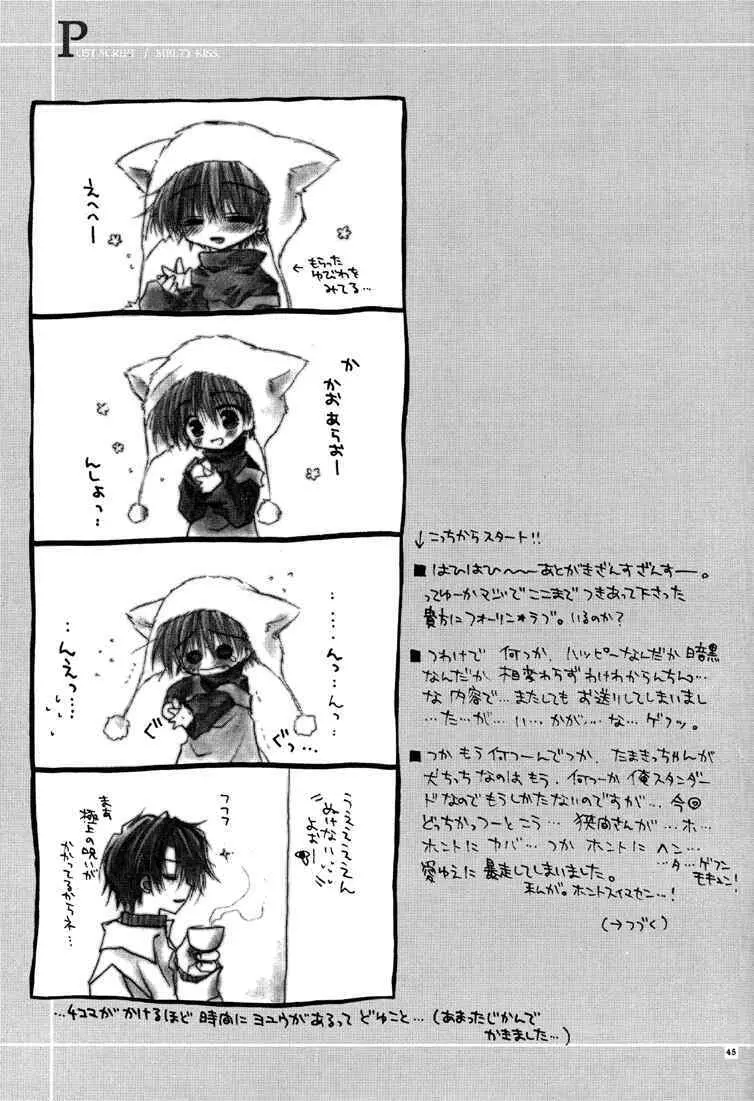 POST SCRIPT / MELTY KISS
えへへー
←もらった
ゆびわを
みてる…
か
かおあらおー
んしょっ…
…んっ…んっ…
…んえっ…
ぐっ…
ぐ
うえええええん
ぬけない…
よおー
フフフ
まあ
極上の呪が
かかってるからネ…
…4コマがかけるほど 時間に ヨユウがあるって どゆこと…(あまったじかんで
かきました…)
↓こっちからスタート!!
■はひはひ〜〜あとがきざんすざんすー。
ってゆーかマジでここまで つきあって下さった
貴方にフォーリン★ラブ。いるのか?
■つわけで 何つか、ハッピーなんだか暗黒
なんだか相変わらず わけわからんちんっ…
な 内容で…またしても お送りしてしまいまし
…た…が… い… かが… な… ゲフッ。
■つか もう 何つーんでつか、たまきっちゃんが
犬ちっち なのは もう、何つーか 俺スタンダー
ドなので もうしかたないのですが… 今回
どっちかっつーと こう… 狭間さんが… ホ…
ホントに ヤバ… つか ホントに ヘン…
…タ…ゲフン
モキュン!
愛ゆえに 暴走してしまいました。
私が。ホントスイマセン…!
(→つづく)
45